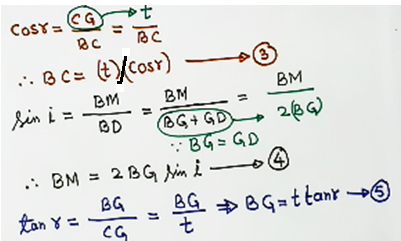 cosr = CG/BC = t/BC
∴ BC = (t)/(cosr) → ③
sin i = BM/BD = BM/(BG+GD) = BM/2(BG)
∵ BG = GD
∴ BM = 2BG sin i → ④
tan r = BG/CG = BG/t ⇒ BG = t tanr → ⑤